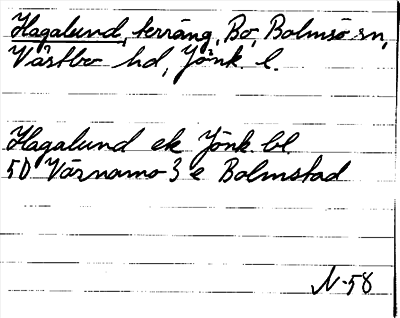 Hagalund, terräng, Bo, Bolmsö sn,
Västbo hd, Jönk. l.
Hagalund ek Jönk bl
5D Värnamo 3 e Bolmstad
N-58